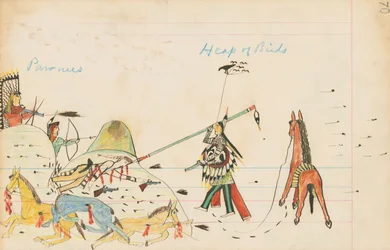 Heap of Birds
Pawnees
70